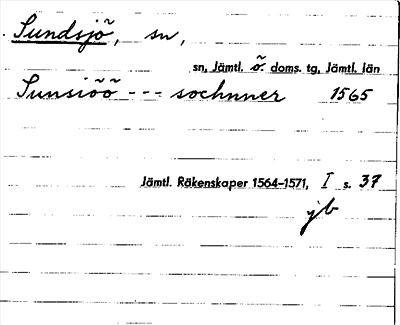 Sundsjö, sn,
sn, Jämtl. ö. doms. tg, Jämtl. län
Sunsiöö --- sochnner 1565
Jämtl. Räkenskaper 1564-1571, I s. 37
jb